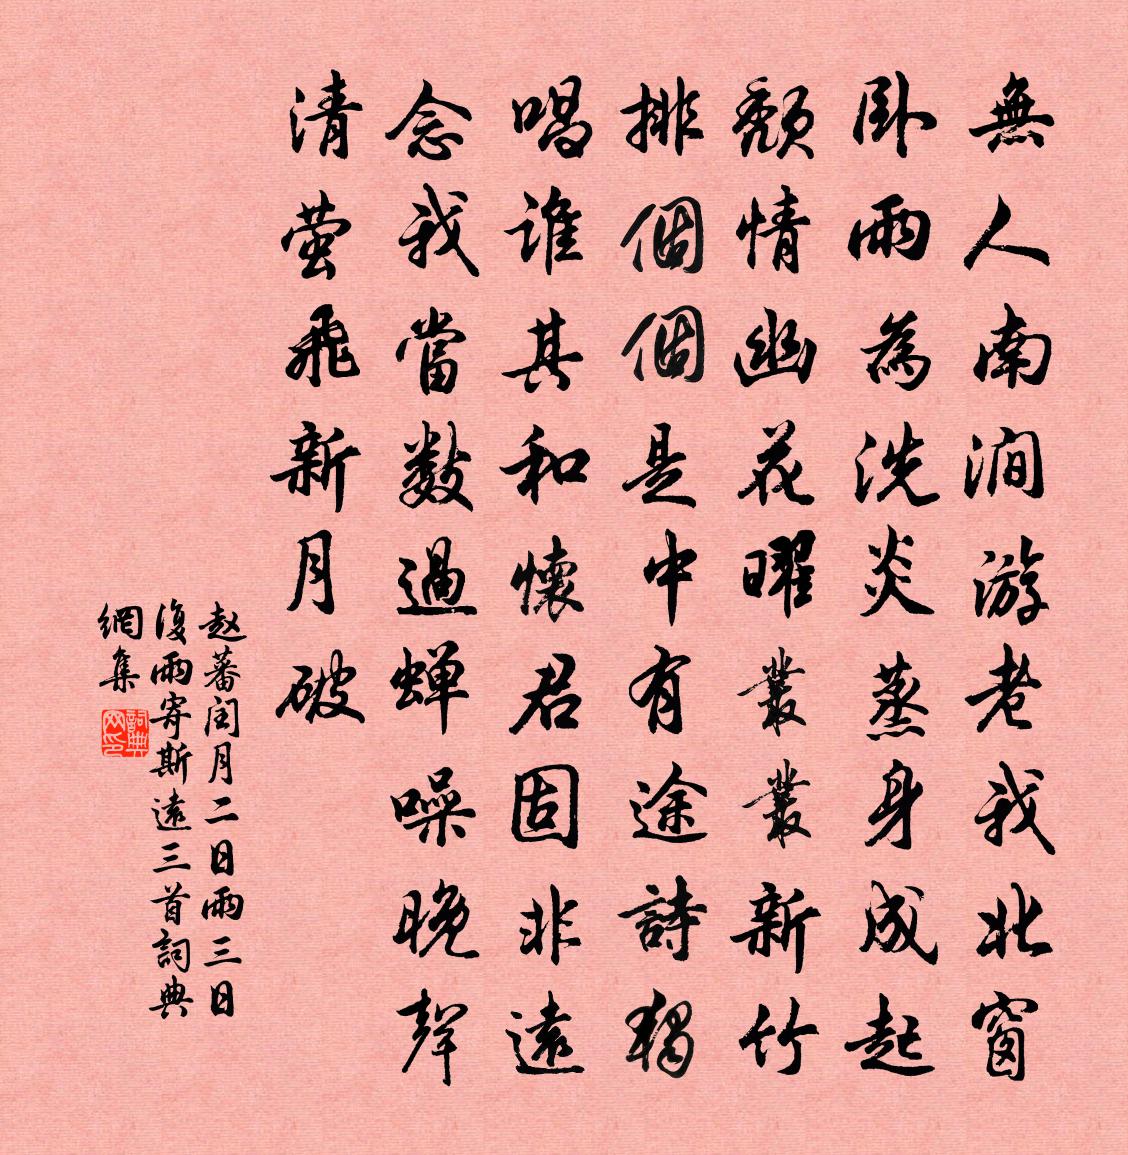 無人南澗游老我北窗
卧雨為洗炎蒸身成起
頹情幽花曜叢叢新竹
排個個是中有途詩獨
唱誰其和懷君固非遠
念我當數過蝉噪晚聲
清萤飛新月破
赵蕃闰月二日雨三日
復雨寄斯遠三首詞典
網集
詞典網印